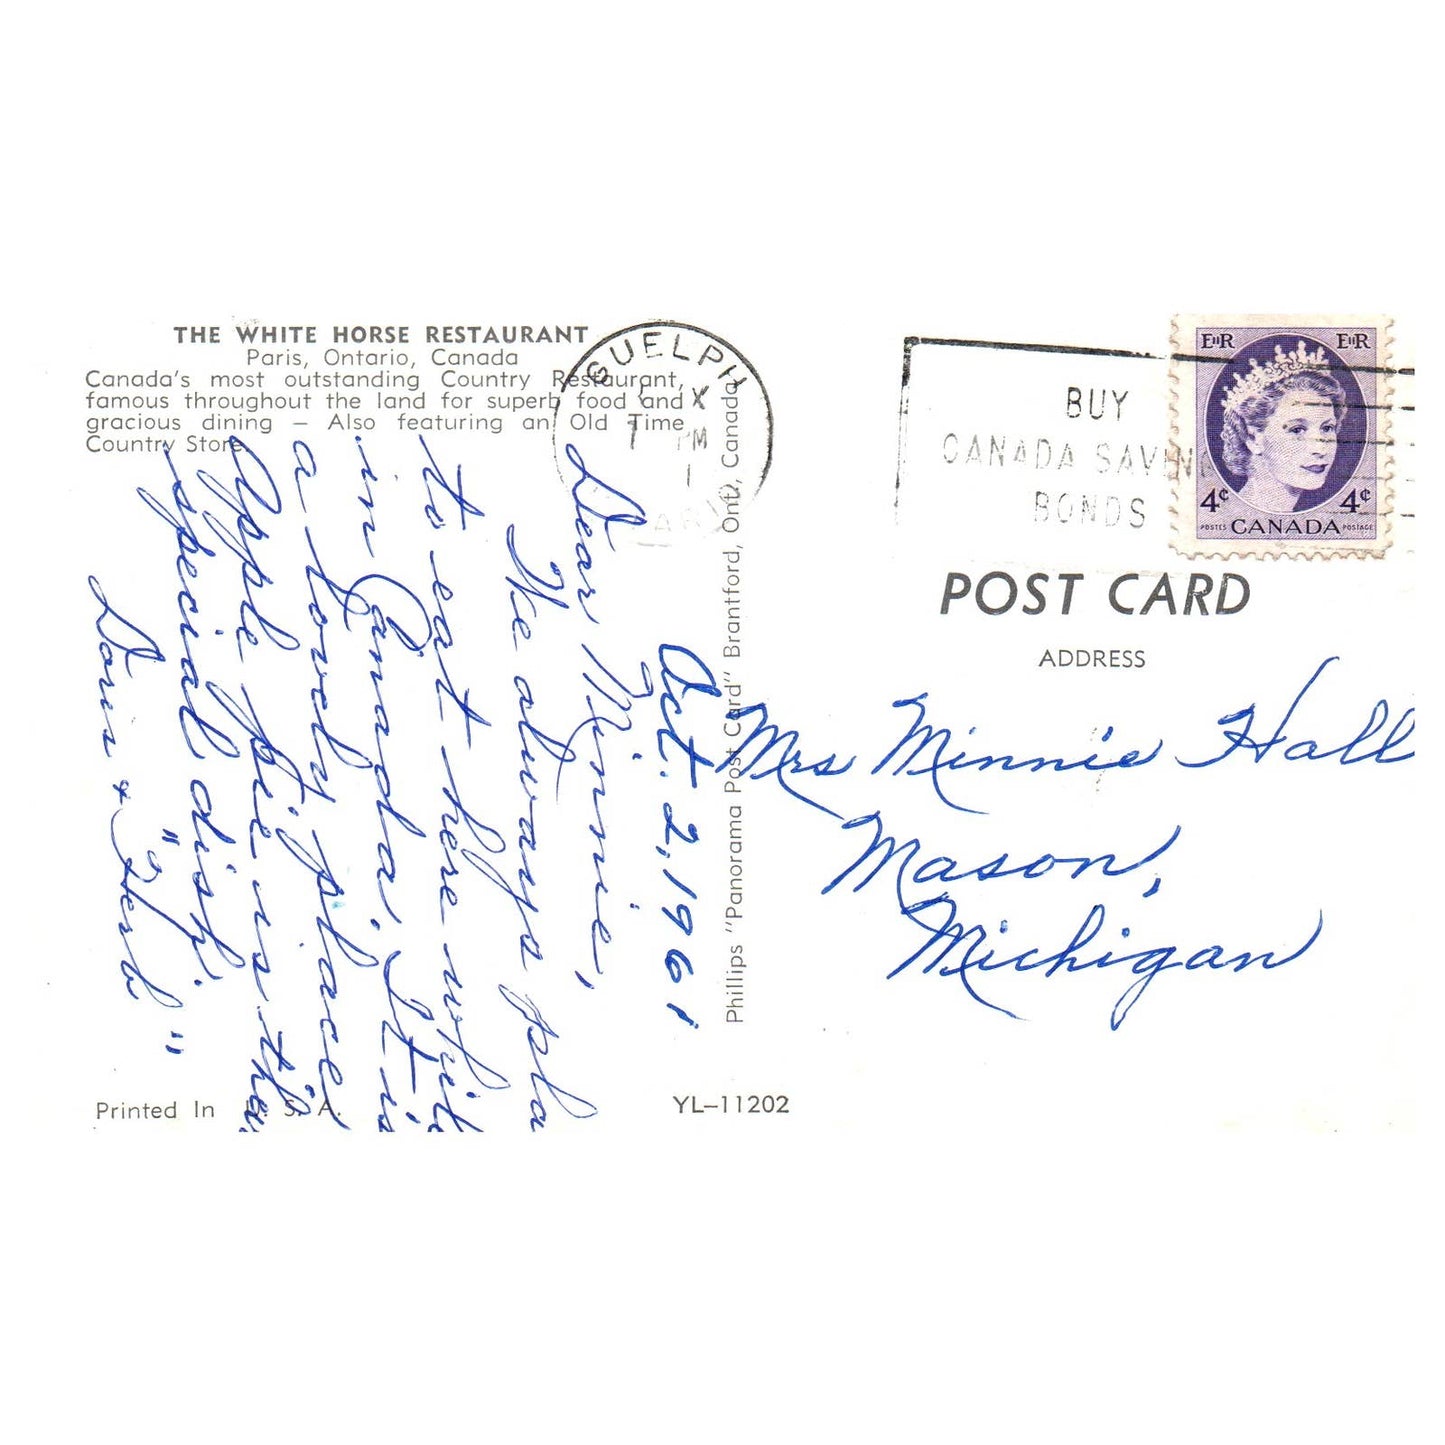 THE WHITE HORSE RESTAURANT
Paris, Ontario, Canada
Canada's most outstanding Country Restaurant,
famous throughout the land for superb food and
gracious dining – Also featuring an Old Time
Country Store.
GUELPH
X
PM
1
BUY
CANADA SAVIN
BONDS
EIIR EIIR
4¢ 4¢
POSTES CANADA POSTAGE
POST CARD
ADDRESS
Oct. 2, 1961
Dear Minnie,
We always pla
to eat here while
in Canada. It is
a lovely place
Apple pie is the
special dish.
Doris + "Herb"
Mrs Minnie Hall
Mason,
Michigan
Phillips "Panorama Post Card" Brantford, Ont., Canada
Printed In U. S. A.
YL–11202